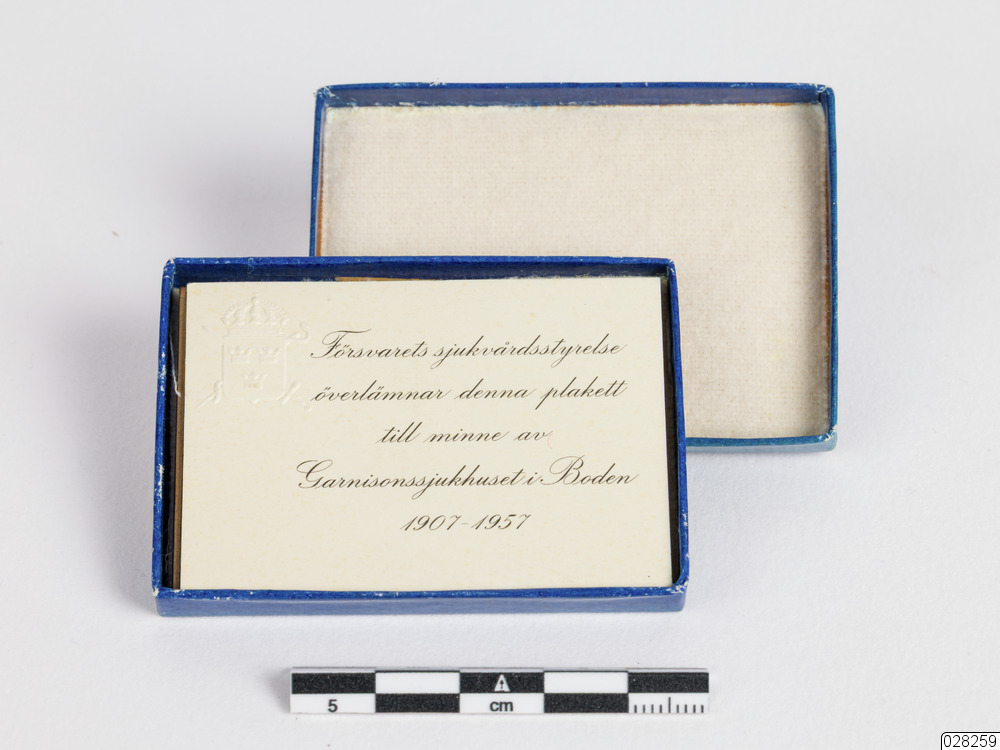 Försvarets sjukvårdsstyrelse
överlämnar denna plakett
till minne av
Garnisonssjukhuset i Boden
1907-1957
5 cm
028259